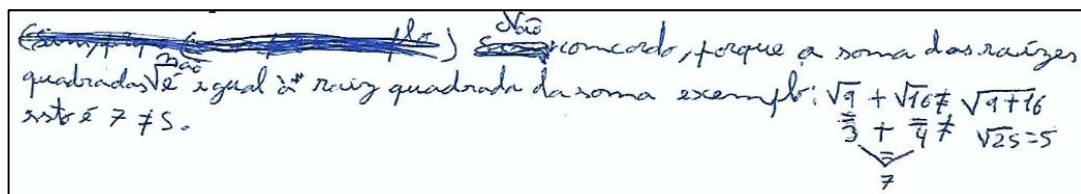 Não concordo, porque a soma das raízes
quadradas não é igual à raiz quadrada da soma exemplo: √9 + √16 ≠ √9+16
isto é 7 ≠ 5. 3 + 4 ≠ √25 = 5
7